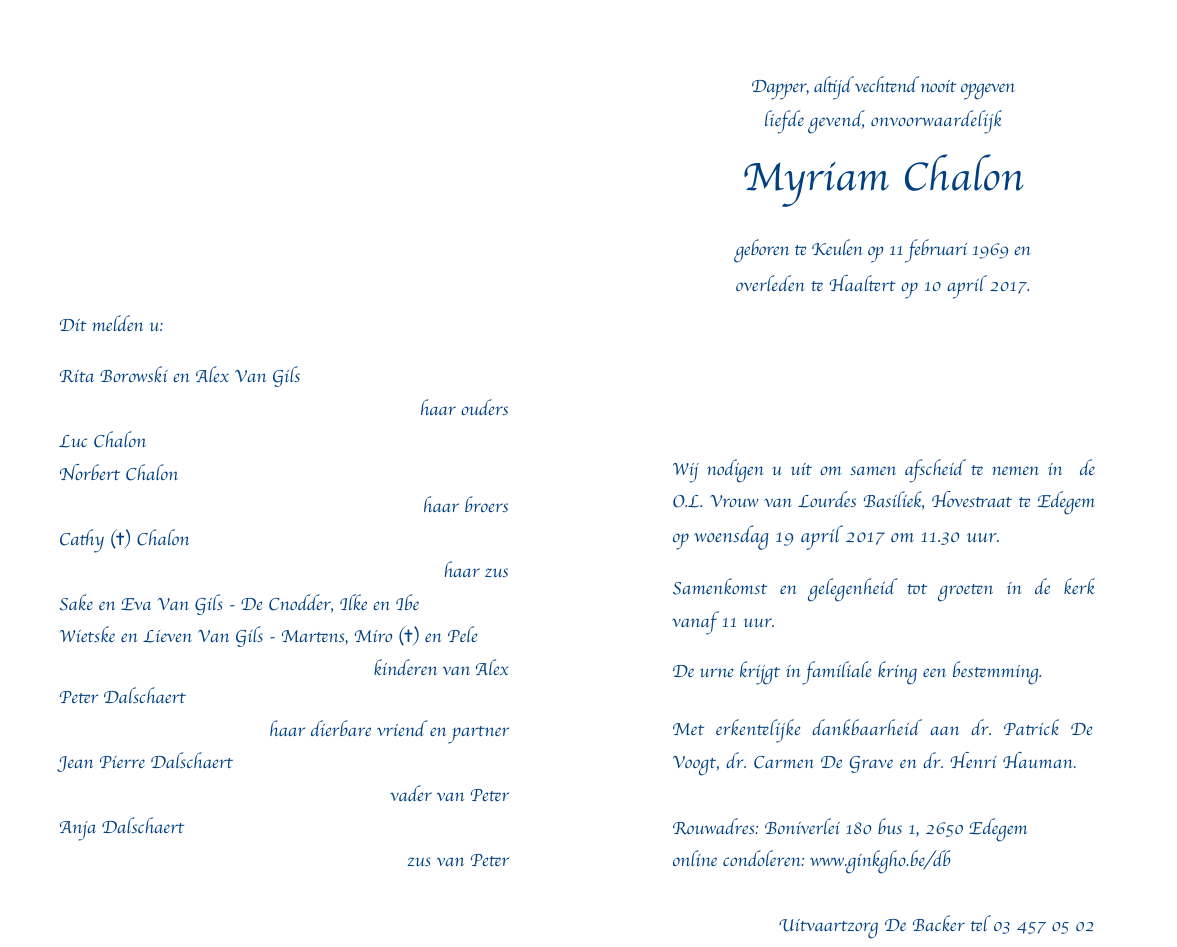 Dit melden u:
Rita Borowski en Alex Van Gils
haar ouders
Luc Chalon
Norbert Chalon
haar broers
Cathy (✝) Chalon
haar zus
Sake en Eva Van Gils - De Cnodder, Ilke en Ibe
Wietske en Lieven Van Gils - Martens, Miro (✝) en Pele
kinderen van Alex
Peter Dalschaert
haar dierbare vriend en partner
Jean Pierre Dalschaert
vader van Peter
Anja Dalschaert
zus van Peter
Dapper, altijd vechtend nooit opgeven
liefde gevend, onvoorwaardelijk
Myriam Chalon
geboren te Keulen op 11 februari 1969 en
overleden te Haaltert op 10 april 2017.
Wij nodigen u uit om samen afscheid te nemen in de
O.L. Vrouw van Lourdes Basiliek, Hovestraat te Edegem
op woensdag 19 april 2017 om 11.30 uur.
Samenkomst en gelegenheid tot groeten in de kerk
vanaf 11 uur.
De urne krijgt in familiale kring een bestemming.
Met erkentelijke dankbaarheid aan dr. Patrick De
Voogt, dr. Carmen De Grave en dr. Henri Hauman.
Rouwadres: Boniverlei 180 bus 1, 2650 Edegem
online condoleren: www.ginkgho.be/db
Uitvaartzorg De Backer tel 03 457 05 02